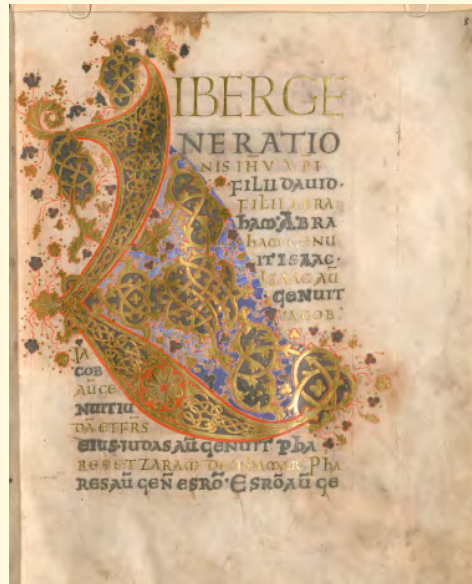 8
LIBER GE
NERATIO
NIS IHU XPI
FILII DAUID·
FILII ABRA
ham· ABRA
ham GENU
IT ISAAC·
IZAAC AU
GENUIT
IACOB·
IA
COB
AUGE
NUIT IU
DA ET FRS
EIUS· IUDAS AŪ GENUIT Pha
RES ET ZARAM DE ThAMAR· Pha
RES AŪ GEN̄ ESRŌ· ESRŌ AŪ GE